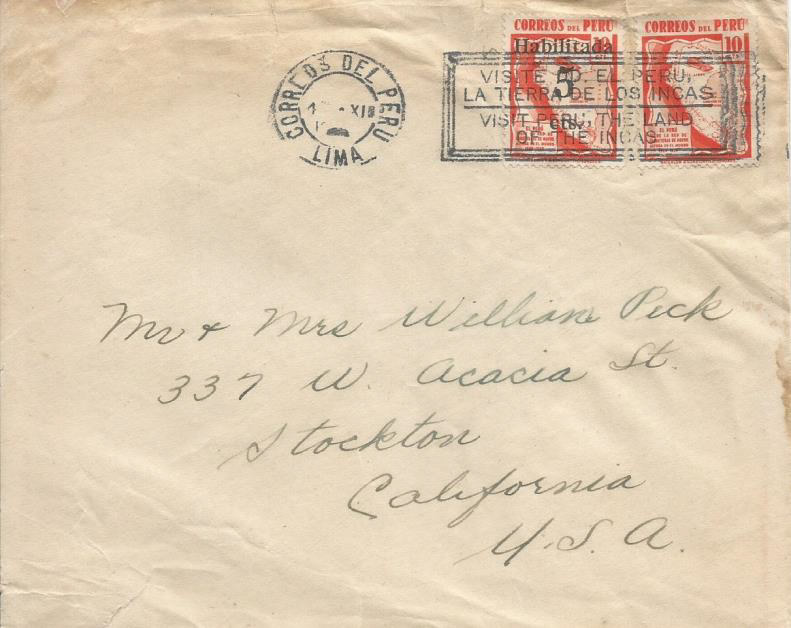 CORREOS DEL PERU
XII
LIMA
CORREOS DEL PERU
10
Habilitada
5
cts.
CORREOS DEL PERU
10
VISITE UD. EL PERU,
LA TIERRA DE LOS INCAS
VISIT PERU, THE LAND
OF THE INCAS
Mr & Mrs William Peck
337 W. Acacia St.
Stockton
California
U.S.A.